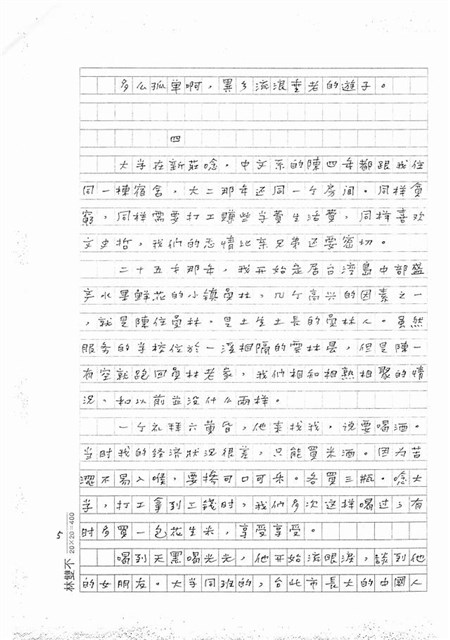 多么孤單啊，異乡流浪垂老的遊子。
四
大学在新莊唸，中文系的陳四年都跟我住
同一棟宿舍，大二那年还同一个房间。同样貧
窮，同样需要打工賺些学費生活費，同样喜欢
文史哲，我们的感情比亲兄弟还要密切。
二十五岁那年，我开始定居台湾島中部盛
产水果鮮花的小鎮員林，几个高兴的因素之一
，就是陳住員林。是土生土長的員林人。虽然
服务的学校位於一溪相隔的雲林县，但是陳一
有空就跑回員林老家，我们相知相熟相聚的情
況，和以前並沒什么兩样。
一个礼拜六黃昏，他来找我，说要喝酒。
当时我的经济狀況很差，只能買米酒。因为苦
澀不易入喉，要摻可口可乐。各買三瓶。唸大
学，打工拿到工錢时，我们多次这样喝过；有
时多買一包花生米，享受享受。
喝到天黑喝光光，他开始流眼淚，談到他
的女朋友。大学同班的，台北市長大的中國人
林雙不 20×20=400
5